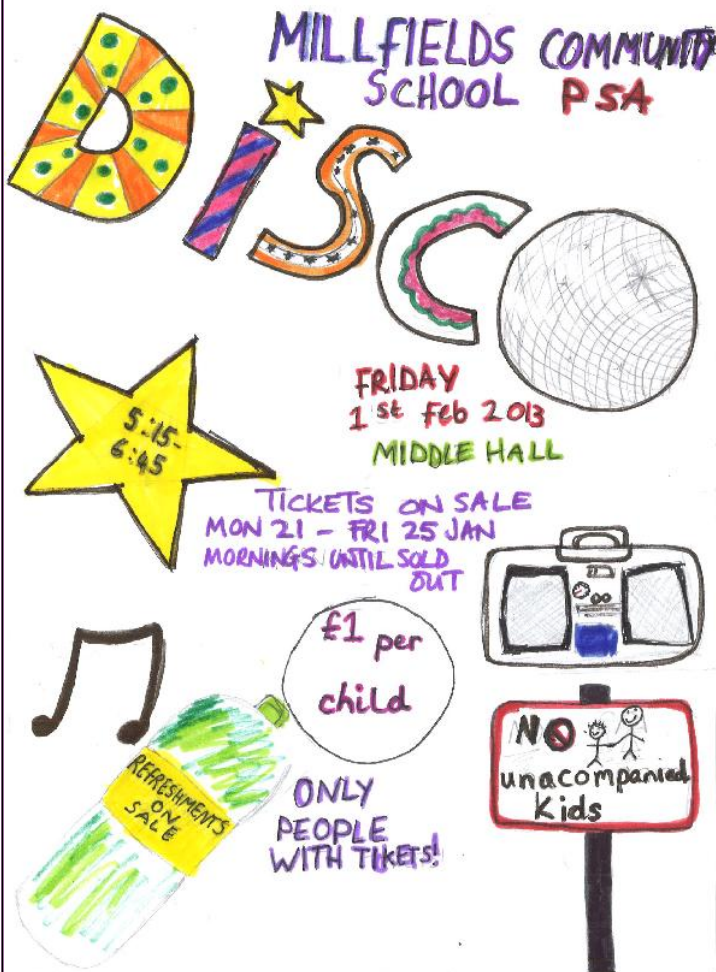 MILLFIELDS COMMUNITY
SCHOOL PSA
DiSCO
5:15-
6:45
FRIDAY
1st Feb 2013
MIDDLE HALL
TICKETS ON SALE
MON 21 - FRI 25 JAN
MORNINGS UNTIL SOLD
OUT
£1 per
child
REFRESHMENTS
ON
SALE
ONLY
PEOPLE
WITH TIKETS!
NO
unacompanied
Kids